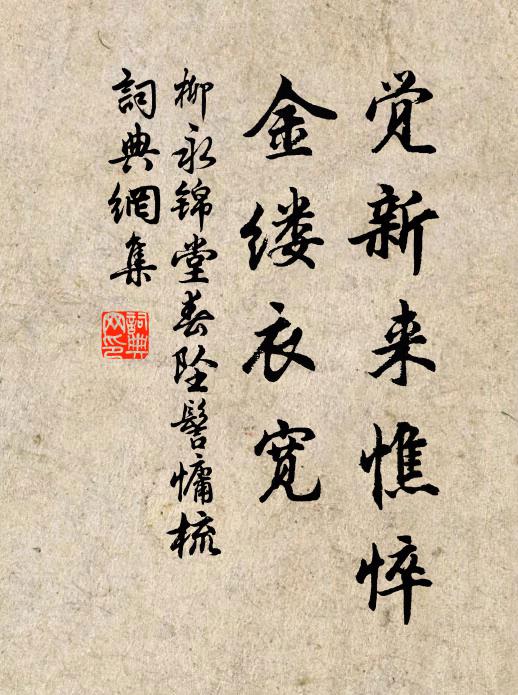 觉新来憔悴
金缕衣宽
柳永锦堂春坠髻慵梳
詞典網集
詞典网印